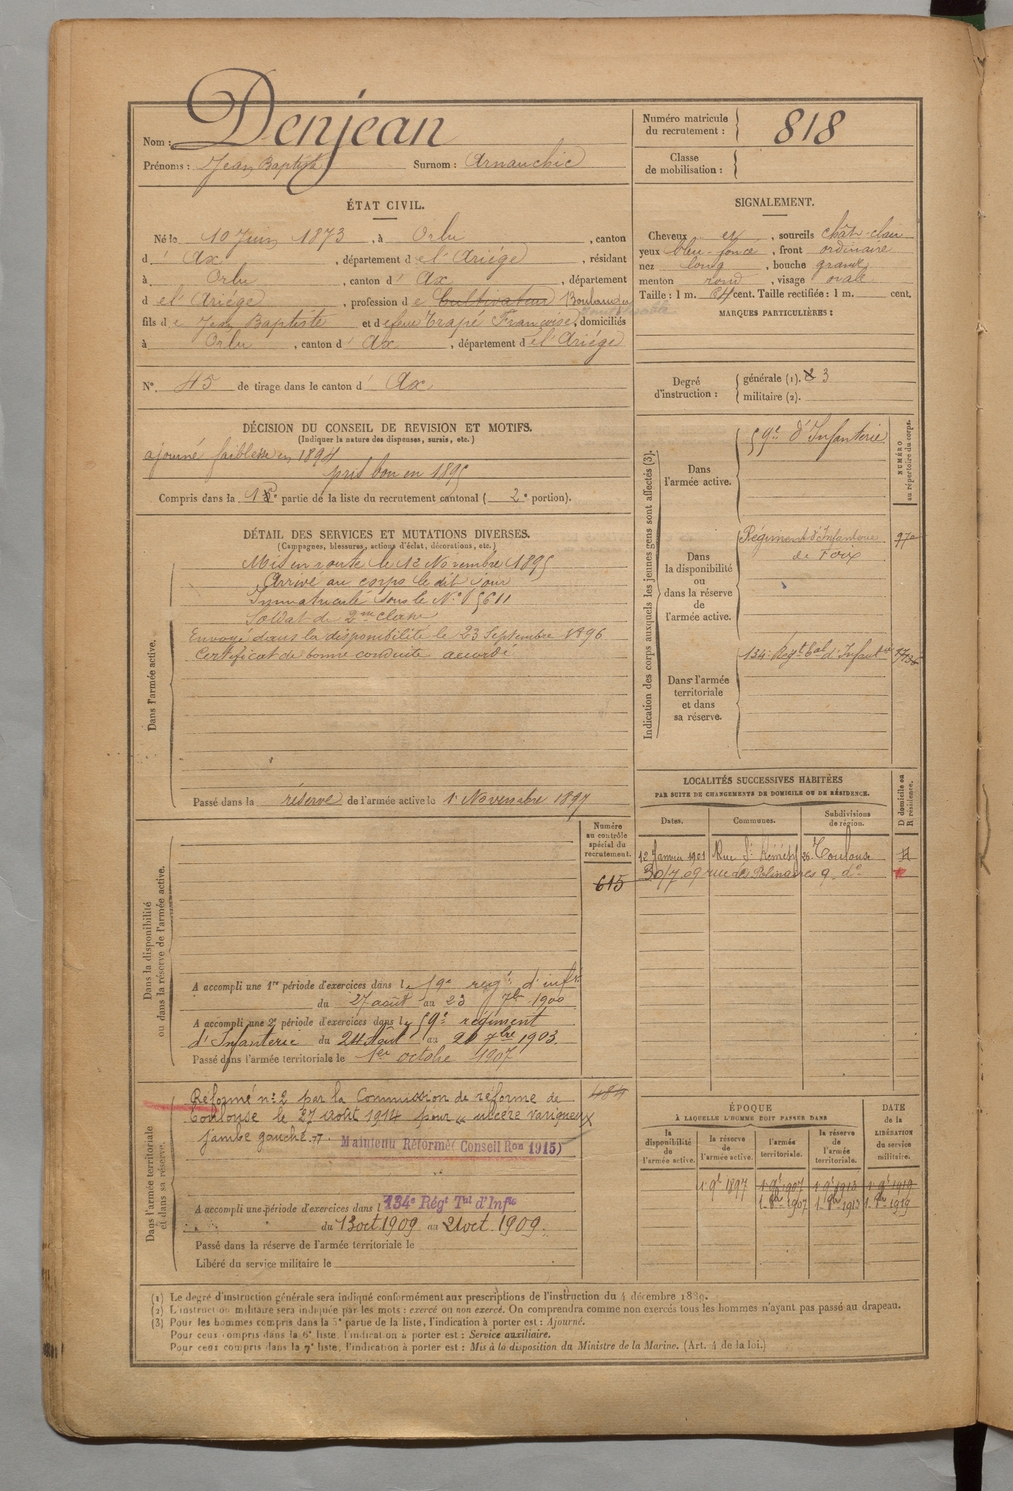 Denjean
Nom :
Prénoms : Jean Baptiste Surnom : Arnauchic
Numéro matricule
du recrutement : 818
Classe
de mobilisation :
ÉTAT CIVIL.
Né le 10 Juin 1873, à Orlu, canton
d' Ax, département de l'Ariége, résidant
à Orlu, canton d' Ax, département
de l'Ariége, profession de Cultivateur Boulanger
fils de Jean Baptiste et de feue Trapé Françoise, domiciliés
à Orlu, canton d' Ax, département de l'Ariége
N° 45 de tirage dans le canton d' Ax
SIGNALEMENT.
Cheveux et, sourcils chât-clair
yeux bleu-foncé, front ordinaire
nez long, bouche grande
menton rond, visage ovale
Taille : 1 m. 64 cent. Taille rectifiée : 1 m. cent.
MARQUES PARTICULIÈRES :
Degré
d'instruction :
générale (1). 3
militaire (2).
DÉCISION DU CONSEIL DE REVISION ET MOTIFS.
(Indiquer la nature des dispenses, sursis, etc.)
ajourné faiblesse en 1894
pris bon en 1895
Compris dans la 1e partie de la liste du recrutement cantonal ( 2e portion).
DÉTAIL DES SERVICES ET MUTATIONS DIVERSES.
(Campagnes, blessures, actions d'éclat, décorations, etc.)
Dans l'armée active.
Mis en route le 12 Novembre 1895
Arrivé au corps le dit jour
Immatriculé sous le N° 15611
Soldat de 2me classe
Envoyé dans la disponibilité le 23 Septembre 1896
Certificat de bonne conduite accordé
Passé dans la réserve de l'armée active le 1er Novembre 1897
Indication des corps auxquels les jeunes gens sont affectés (3).
NUMÉRO
au répertoire du corps.
Dans
l'armée active.
59e d'Infanterie
Dans
la disponibilité
ou
dans la réserve
de
l'armée active.
Régiment d'Infanterie
de Foix
Dans l'armée
territoriale
et dans
sa réserve.
134e Régt tal d'Infant
LOCALITÉS SUCCESSIVES HABITÉES
PAR SUITE DE CHANGEMENTS DE DOMICILE OU DE RÉSIDENCE.
Dates. Communes. Subdivisions
de région.
D domicile ou
R résidence.
12 Janvier 1901 Rue St Rémésy 26 Toulouse
30/7 09 rue des Polinaires 9 do
Dans la disponibilité
ou dans la réserve de l'armée active.
Numéro
au contrôle
spécial du
recrutement.
615
A accompli une 1re période d'exercices dans le 59e régt d'infie
du 27 août au 23 7bre 1900
A accompli une 2e période d'exercices dans le 59e régiment
d'Infanterie du 24 Août au 20 7bre 1903
Passé dans l'armée territoriale le 1er octobre 1907
Dans l'armée territoriale
et dans sa réserve.
Réformé n° 2 par la Commission de réforme de
Toulouse le 27 août 1914 pour « ulcère variqueux
jambe gauche ».
Maintenu Réformé (Conseil Ron 1915)
A accompli une période d'exercices dans l 134e Régt Tal d'Infie
du 13 oct 1909 au 21 oct 1909.
Passé dans la réserve de l'armée territoriale le
Libéré du service militaire le
ÉPOQUE
À LAQUELLE L'HOMME DOIT PASSER DANS
DATE
de la
LIBÉRATION
du service
militaire.
la
disponibilité
de
l'armée active.
la réserve
de
l'armée active.
l'armée
territoriale.
la réserve
de
l'armée
territoriale.
1. 9bre 1897 1. 9bre 1907 1. 9bre 1913 1. 9bre 1919
1. 8bre 1907 1. 8bre 1913 1. 8bre 1919
(1) Le degré d'instruction générale sera indiqué conformément aux prescriptions de l'instruction du 4 décembre 1889.
(2) L'instruction militaire sera indiquée par les mots : exercé ou non exercé. On comprendra comme non exercés tous les hommes n'ayant pas passé au drapeau.
(3) Pour les hommes compris dans la 5e partie de la liste, l'indication à porter est : Ajourné.
Pour ceux compris dans la 6e liste, l'indication à porter est : Service auxiliaire.
Pour ceux compris dans la 7e liste, l'indication à porter est : Mis à la disposition du Ministre de la Marine. (Art. 4 de la loi.)